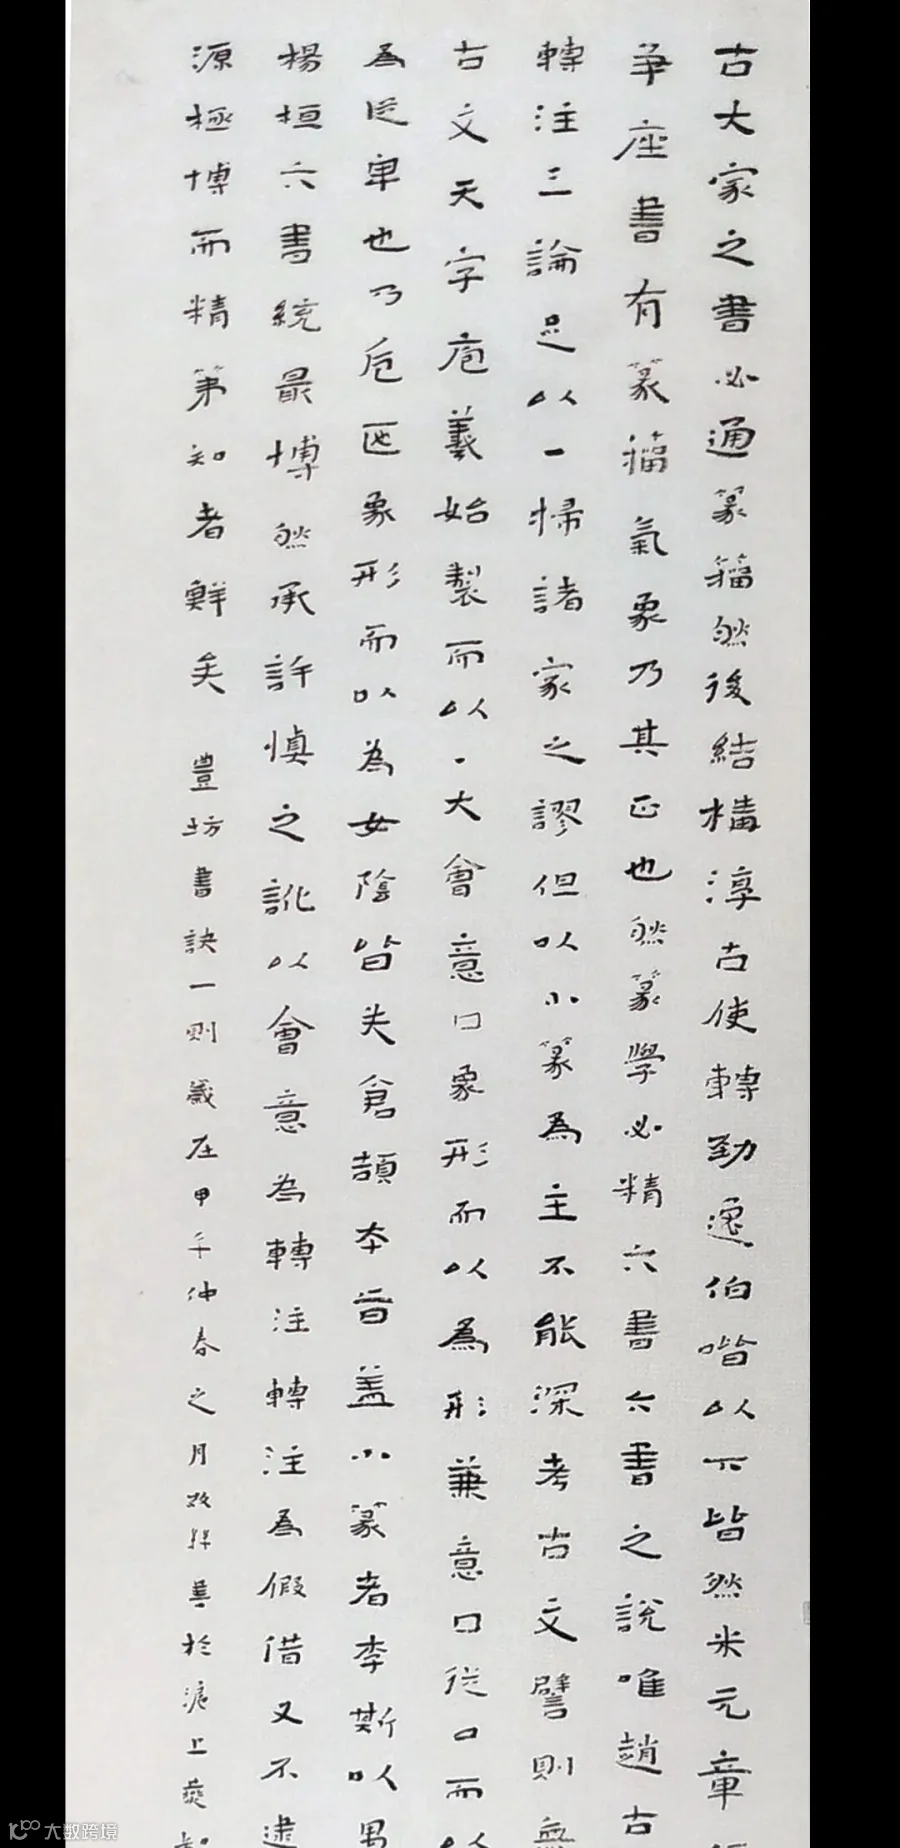 古大家之書必通篆籀然後結構淳古使轉勁逸伯喈以下皆然米元章
爭座書有篆籀氣象乃其正也然篆學必精六書六書之說唯趙古
轉注三論足以一掃諸家之謬但以小篆為主不能深考古文譬則無
古文天字庖羲始製而以一大會意口象形而以為形兼意口從口而以
為從卑也乃卮匜象形而以為女陰皆失倉頡本旨蓋小篆者李斯以男
楊桓六書統最博然承許慎之訛以會意為轉注轉注為假借又不逮
源極博而精第知者鮮矣 豐坊書訣一則歲在甲午仲春之月於滬上
大数跨境